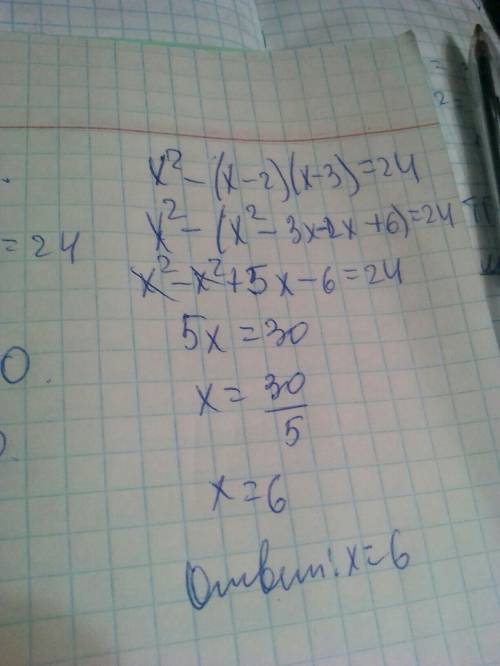 x² - (x-2)(x-3) = 24
x² - (x² - 3x - 2x + 6) = 24
= 24
x² - x² + 5x - 6 = 24
5x = 30
0.
x = 30/5
x = 6
Ответ: x = 6